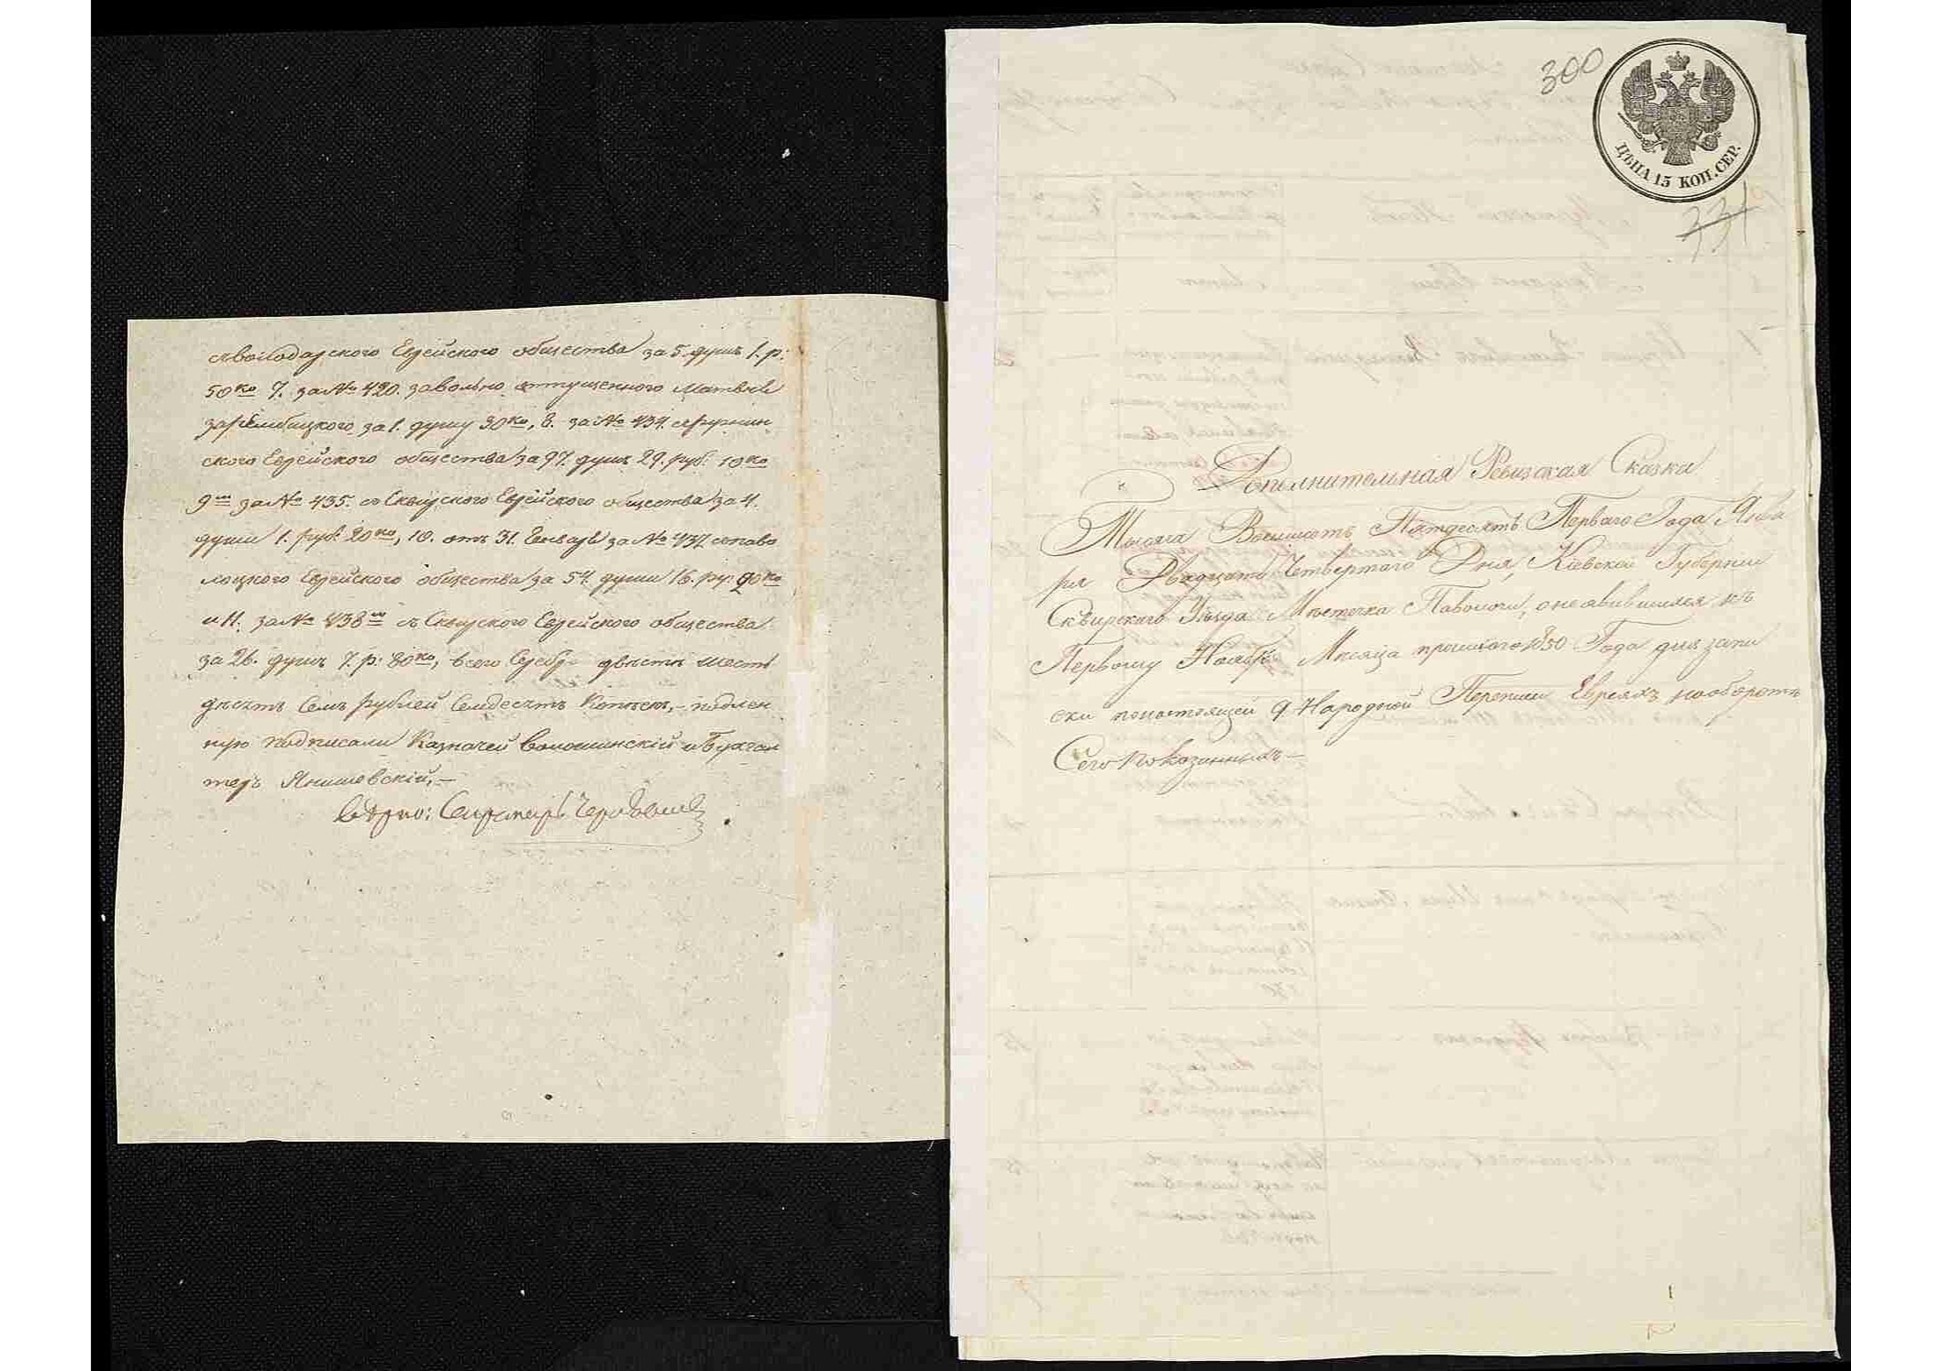 съ володарского Еврейского общества за 5. душъ 1. р:
50 ко 7. за № 420. за вольно отпущенного Матвея
Зарембицкого за 1. душу 30 ко, 8. за № 434 с ружин
ского Еврейского общества за 97. душъ 29. руб: 10 ко
9 за № 435. съ Сквирского Еврейского общества за 4.
души 1. руб: 20 ко, 10. отъ 31. Генваря за № 437 с паво
лоцкого Еврейского общества за 54. души 16. ру: 20 ко
и 11. за № 438 съ Сквирского Еврейского общества
за 26. душъ 7. р: 80 ко, всего Серебр двѣсти шесть
десятъ Семь рублей Семдесятъ Копѣекъ,- подлен
ную подписали Казначей Волошинскій и Бухгал
теръ Янишевскій,-
Вѣрно:
300
ЦѢНА 15 КОП. СЕР.
331
Дополнительная Ревизская Сказка
Тысяча Восемьсотъ Пятдесятъ Перваго Года Янва
ря Двадцать Четвертаго Дня, Кіевской Губерніи
Сквирского Уезда Мѣстечка Паволочи, о неявившихся къ
Первому Ноября Месяца прошлого 1850 Года для запи
ски по настоящей 9. Народной Переписи Евреяхъ на оборотѣ
Сего показанныхъ—